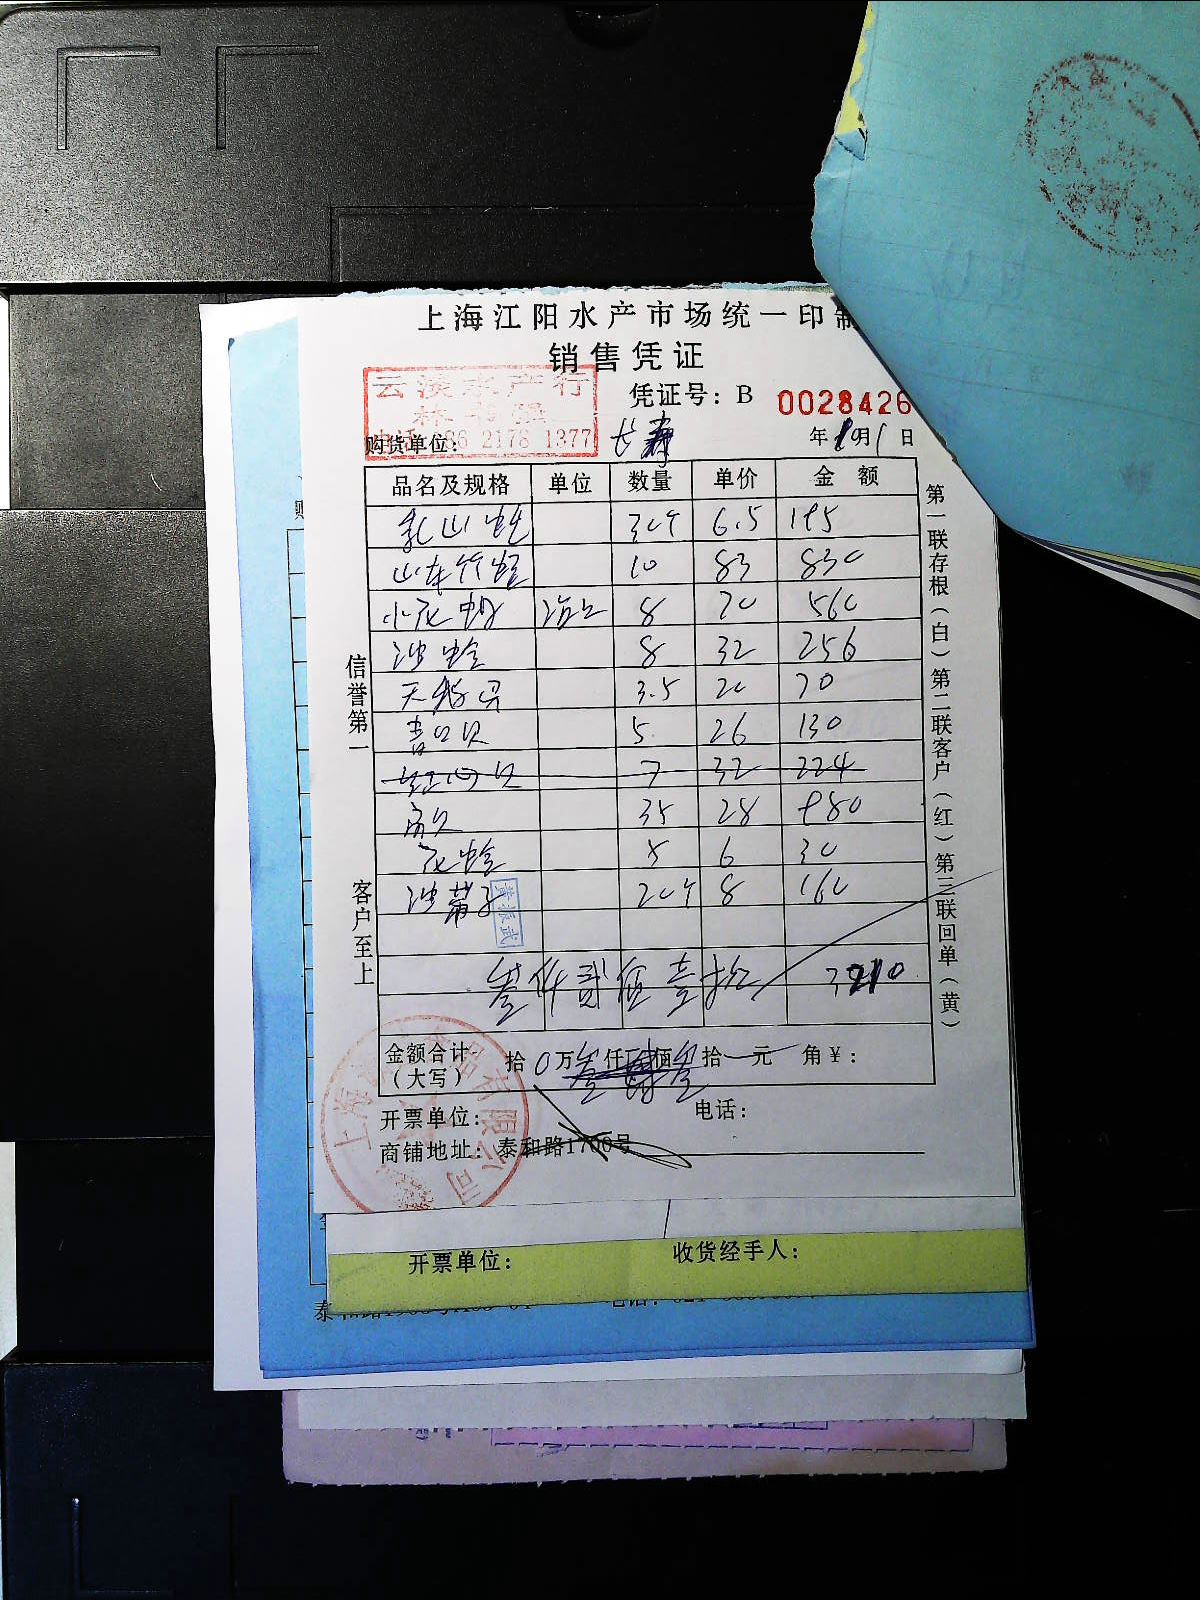 上海江阳水产市场统一印制
销售凭证
云 水产行
凭证号：B 0028426
购货单位： 长寿 年 月1日
2178 1377
品名及规格 单位 数量 单价 金 额
乳山蚝 30个 6.5 195
山东竹蛏 10 83 830
小花蛤 8 70 560
沙蛤 8 32 256
天鹅贝 3.5 20 70
青口贝 5 26 130
红口贝 7 32 224
扇贝 35 28 980
花蛤 5 6 30
沙 20个 8 160
叁仟贰佰壹拾 3210
金额合计（大写） 拾0万叁仟 佰 拾 元 角￥：
开票单位： 电话：
商铺地址：泰和路1700号
信誉第一
客户至上
第一联存根（白）第二联客户（红）第三联回单（黄）
上海 有限公司
开票单位： 收货经手人：